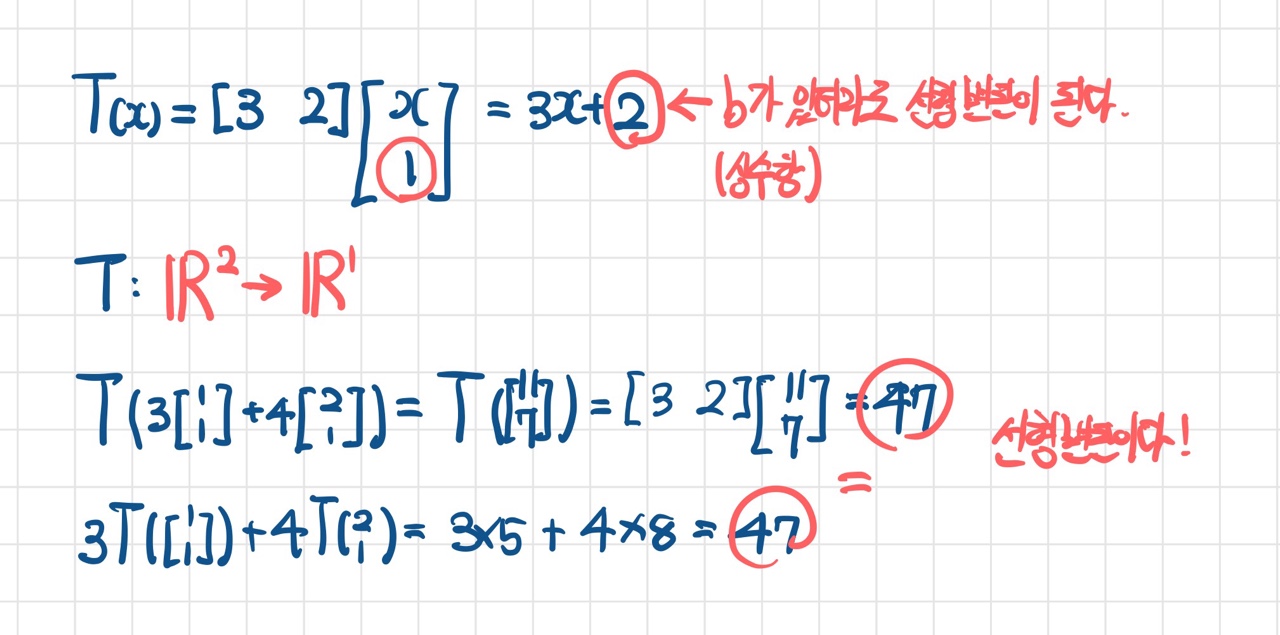 T(x) = [3 2][x 1] = 3x+2 ← b가 있더라도 선형변환이 된다.
(상수항)
T: ℝ² → ℝ¹
T(3[1 1]+4[2 1]) = T([11 7]) = [3 2][11 7] = 47
선형변환이다!
=
3T([1 1])+4T(2 1) = 3×5 + 4×8 = 47